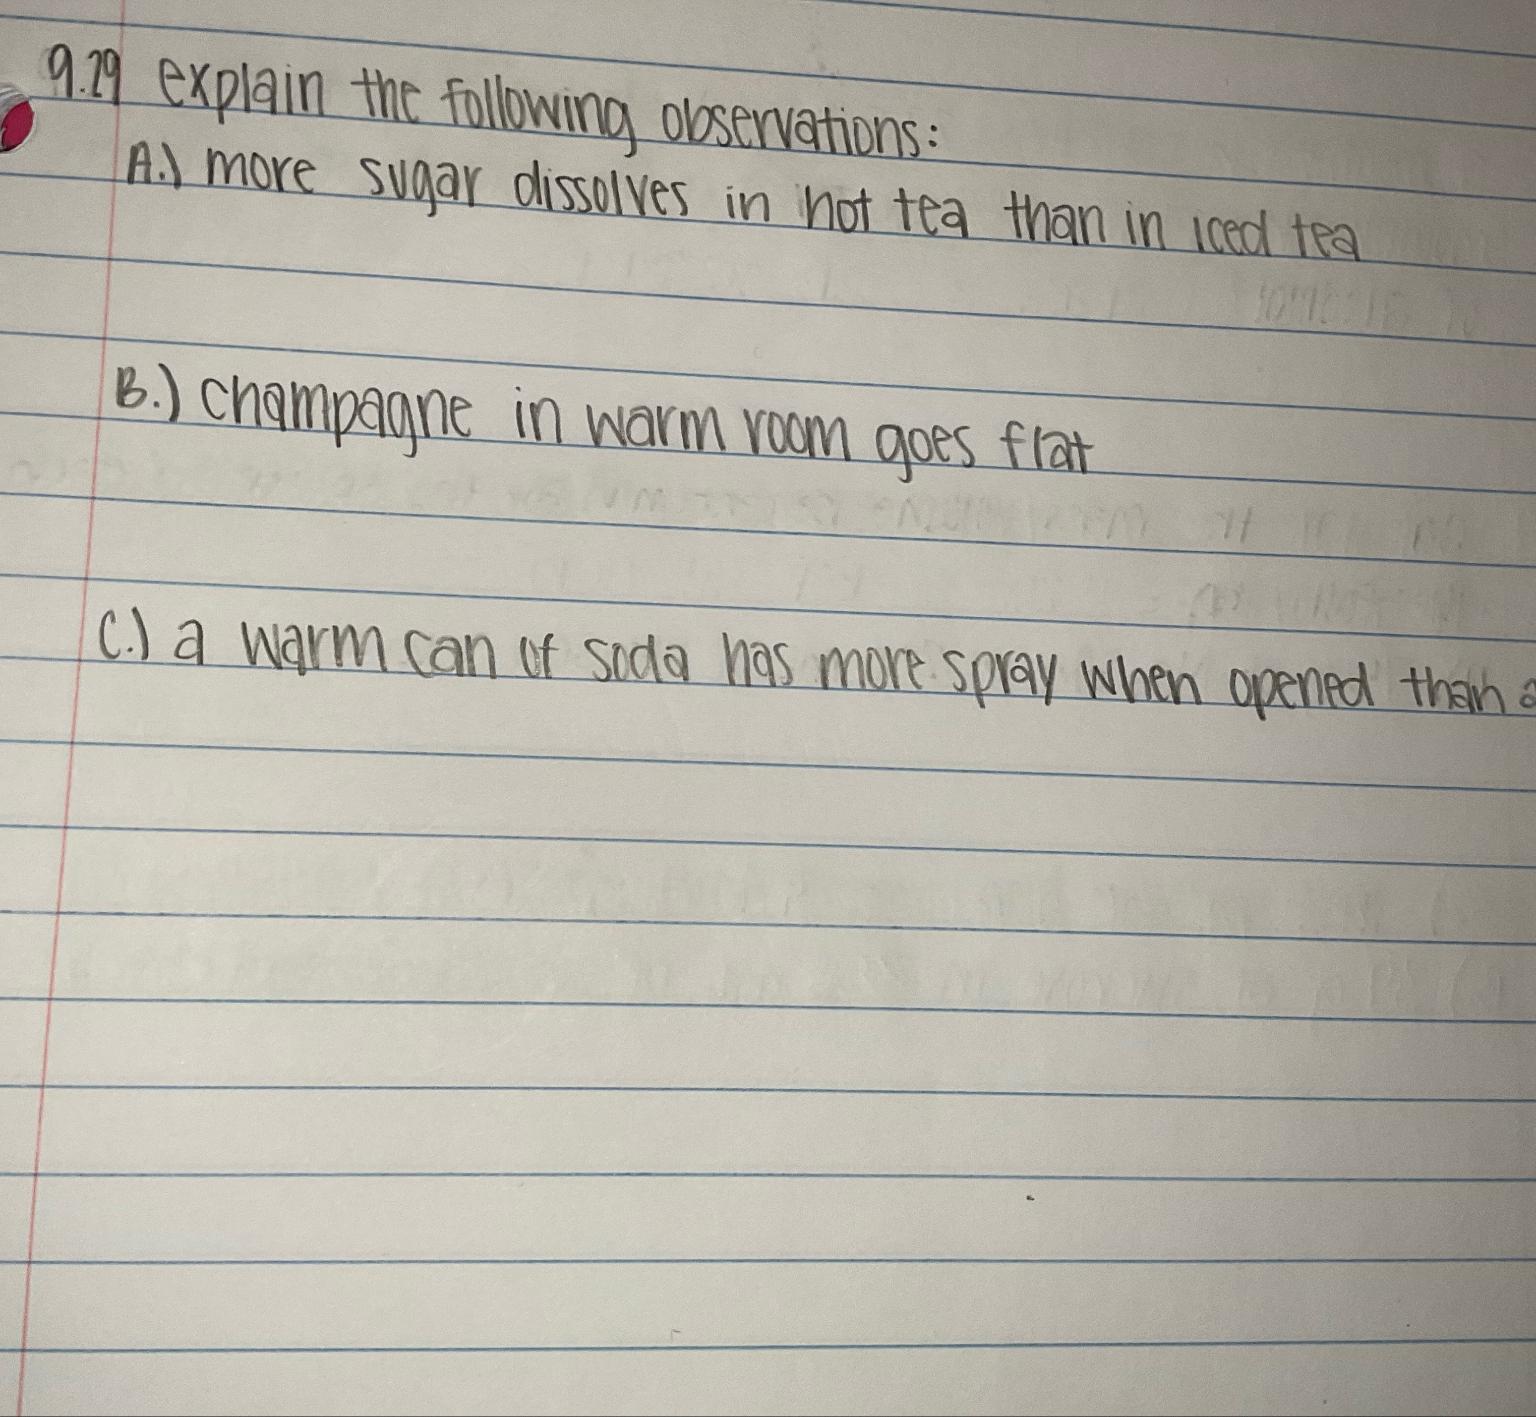 9.29 explain the following observations:
A.) more sugar dissolves in hot tea than in iced tea
B.) champagne in warm room goes flat
C.) a warm can of soda has more spray when opened than a